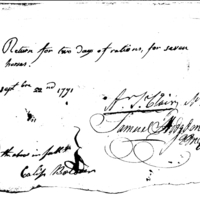 Return for two day of rations for seven
horses.
Sept br 22nd 1791
Ar. St Clair
Samuel Hodgdon
the above in full